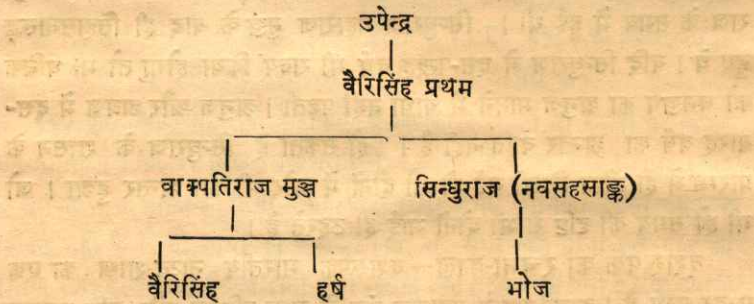 उपेन्द्र
वैरिसिंह प्रथम
वाक्पतिराज मुञ्ज सिन्धुराज (नवसहसाङ्क)
वैरिसिंह हर्ष भोज